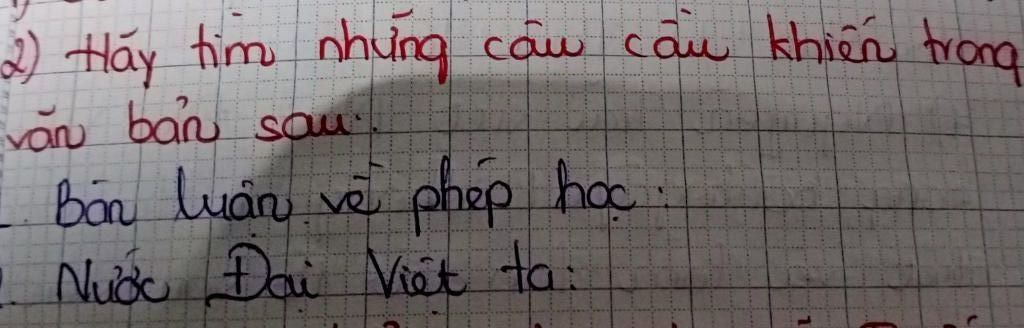 2) Hãy tìm những câu cầu khiến trong
văn bản sau:
Bàn luận về phép học:
Nước Đại Việt ta: